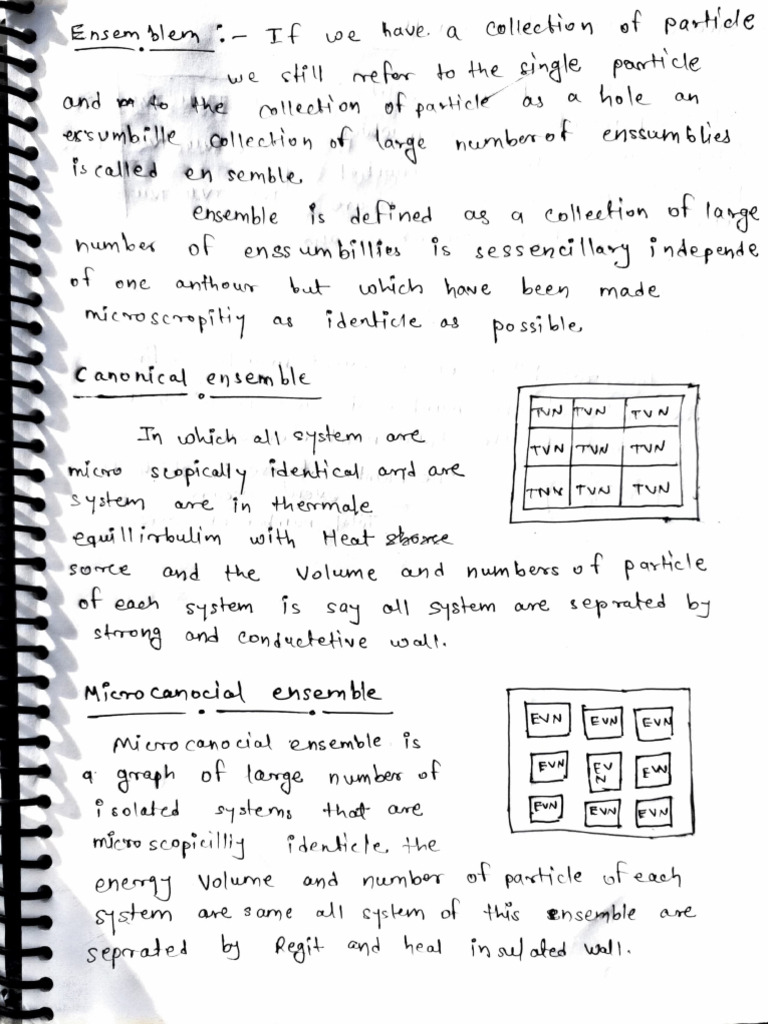 Ensemblem :- If we have a collection of particle
we still refer to the single particle
and to the collection of particle as a hole an
essumbille collection of large number of enssumblies
is called en semble.
ensemble is defined as a collection of large
number of enssumbillies is sessencillary independe
of one anthour but which have been made
microscropitiy as identicle as possible.
Canonical ensemble
In which all system are
micro scopically identical and are
system are in thermale
equillirbulim with Heat
sorce and the volume and numbers of particle
of each system is say all system are seprated by
strong and conductetive wall.
TVN TVN TVN
TVN TVN TVN
TNN TVN TVN
Microcanocial ensemble
Microcanocial ensemble is
a graph of large number of
isolated systems that are
microscopicilliy identicle the
energy volume and number of particle of each
system are same all system of this ensemble are
seprated by Regit and heal insulated wall.
EVN EVN EVN
EVN EVN EVN
EVN EVN EVN